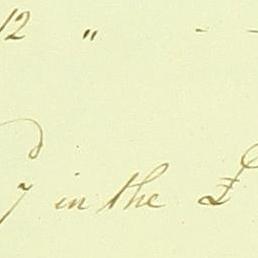 12 " - -
7 in the £